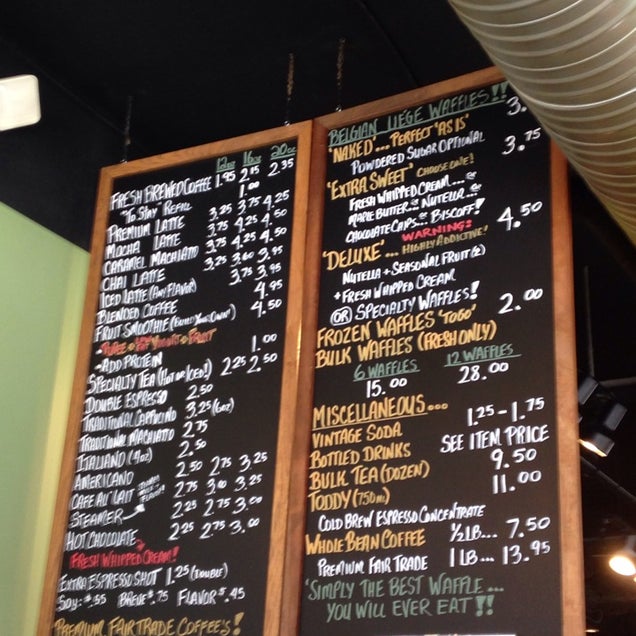 12oz 16oz 20oz
FRESH BREWED COFFEE 1.95 2.15 2.35
"TO STAY" REFILL 1.00
PREMIUM LATTE 3.25 3.75 4.25
MOCHA LATTE 3.75 4.25 4.50
CARAMEL MACHIATO 3.75 4.25 4.50
CHAI LATTE 3.25 3.60 3.95
ICED LATTE (ANY FLAVOR) 3.75 3.95
BLENDED COFFEE 4.95
FRUIT SMOOTHIE (BUILD YOUR OWN!) 4.50
YOGURT FRUIT
-ADD PROTEIN 1.00
SPECIALTY TEA (HOT OR ICED!) 2.25 2.50
DOUBLE ESPRESSO 2.50
TRADITIONAL CAPPUCINO 3.25 (6oz)
TRADITIONAL MACHIATO 2.75
ITALIANO (4oz) 2.50
AMERICANO 2.50 2.75 3.25
CAFE AU LAIT 2.75 3.00 3.25
STEAMER 2.25 2.75 3.00
HOT CHOCOLATE 2.25 2.75 3.00
FRESH WHIPPED CREAM!
EXTRA ESPRESSO SHOT 1.25 (DOUBLE)
SOY: .55 BREVE .75 FLAVOR .45
PREMIUM FAIR TRADE COFFEE'S!
BELGIAN LIEGE WAFFLES!!
'NAKED'... PERFECT 'AS IS' 3.
POWDERED SUGAR OPTIONAL
'EXTRA SWEET' CHOOSE ONE! 3.75
FRESH WHIPPED CREAM... OR
MAPLE BUTTER... OR NUTELLA... OR
CHOCOLATE CAPS... OR BISCOFF!
WARNING:
'DELUXE'... HIGHLY ADDICTIVE! 4.50
NUTELLA + SEASONAL FRUIT (2)
+ FRESH WHIPPED CREAM
(OR) SPECIALTY WAFFLES!
FROZEN WAFFLES 'TO GO' 2.00
BULK WAFFLES (FRESH ONLY)
6 WAFFLES 12 WAFFLES
15.00 28.00
MISCELLANEOUS...
VINTAGE SODA 1.25 - 1.75
BOTTLED DRINKS SEE ITEM PRICE
BULK TEA (DOZEN) 9.50
TODDY (750ml) 11.00
COLD BREW ESPRESSO CONCENTRATE
WHOLE BEAN COFFEE 1/2 LB... 7.50
PREMIUM FAIR TRADE 1 LB... 13.95
'SIMPLY THE BEST WAFFLE...
YOU WILL EVER EAT'!!